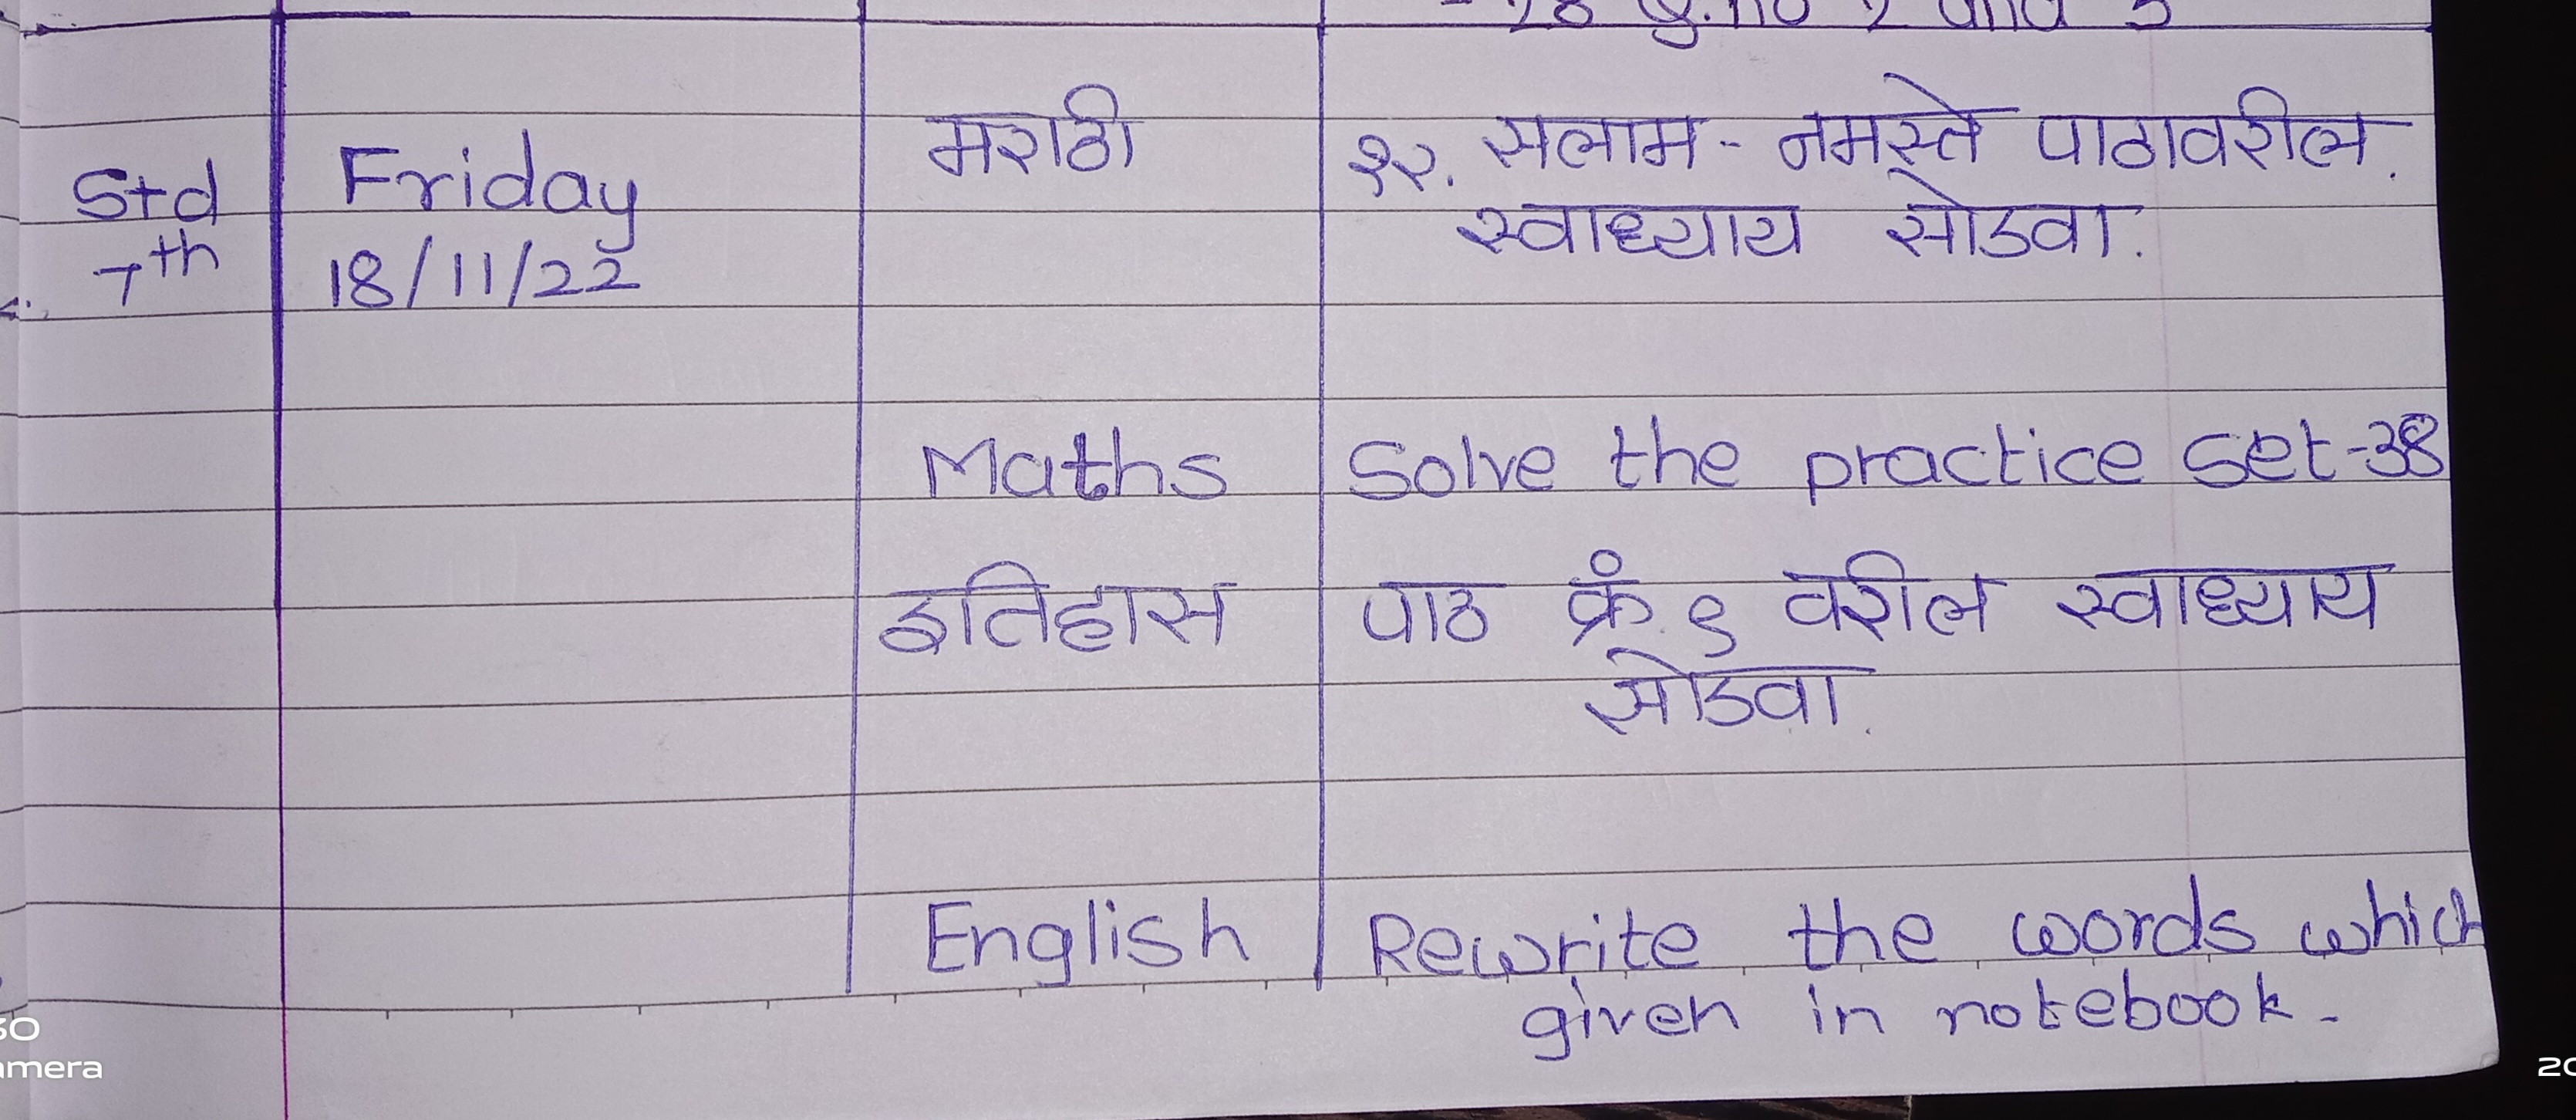 मराठी १२. सलाम - नमस्ते पाठावरील.
Std Friday स्वाध्याय सोडवा.
7th 18/11/22
Maths Solve the practice set-38
इतिहास पाठ क्रं. ९ वरील स्वाध्याय
सोडवा.
English Rewrite the words which
given in notebook.